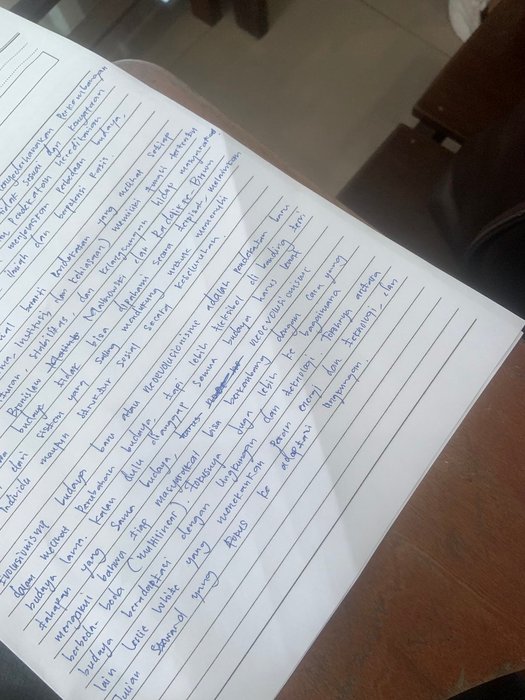 menyederhanakan Perkembangan
tidak sesuai dan kenyataan
Pendekatan hereditarian
menjelaskan Perbedaan budaya,
ilmiah dan berpotensi Rasis.
berarti Pendekatan yang melihat setiap
norma, institusi, dan kebiasaan) memiliki fungsi tertentu
stabilitas, dan kelangsungan hidup masyarakat
Bronislaw Malinowski dan Radcliffe Brown
budaya tidak bisa dipahami secara terpisah melainkan
dari sistem yang saling mendukung untuk memenuhi
individu maupun struktur sosial secara keseluruhan.
Evolusionisme budaya baru atau Neoevolusionisme adalah pendekatan baru
dalam melihat Perubahan budaya tapi lebih fleksibel di banding teori
budaya lama. Kalau dulu dianggap semua budaya harus lewat
tahapan yang sama budaya neoevolusionisme
mengakui bahwa tiap masyarakat bisa berkembang dengan cara yang
berbeda-beda (multilinear) fokusnya juga lebih ke bagaimana
budaya beradaptasi dengan lingkungan dan teknologi Tokohnya antara
lain Leslie White yang menekankan Peran energi dan teknologi, dan
Julian Steward yang fokus ke adaptasi lingkungan.